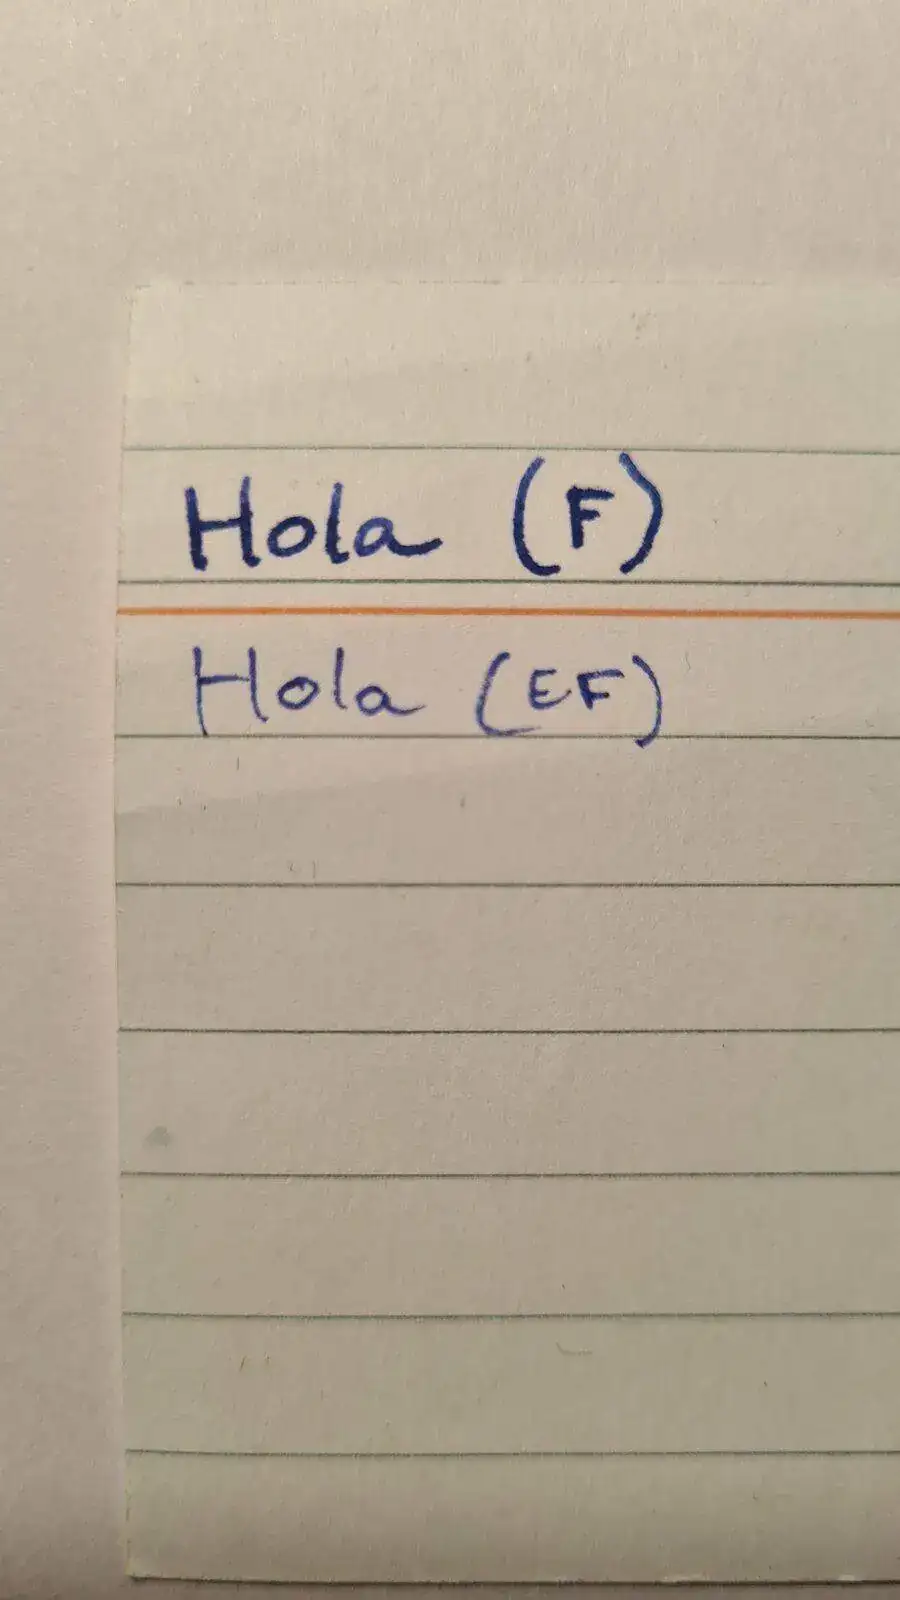 Hola (F)
Hola (EF)